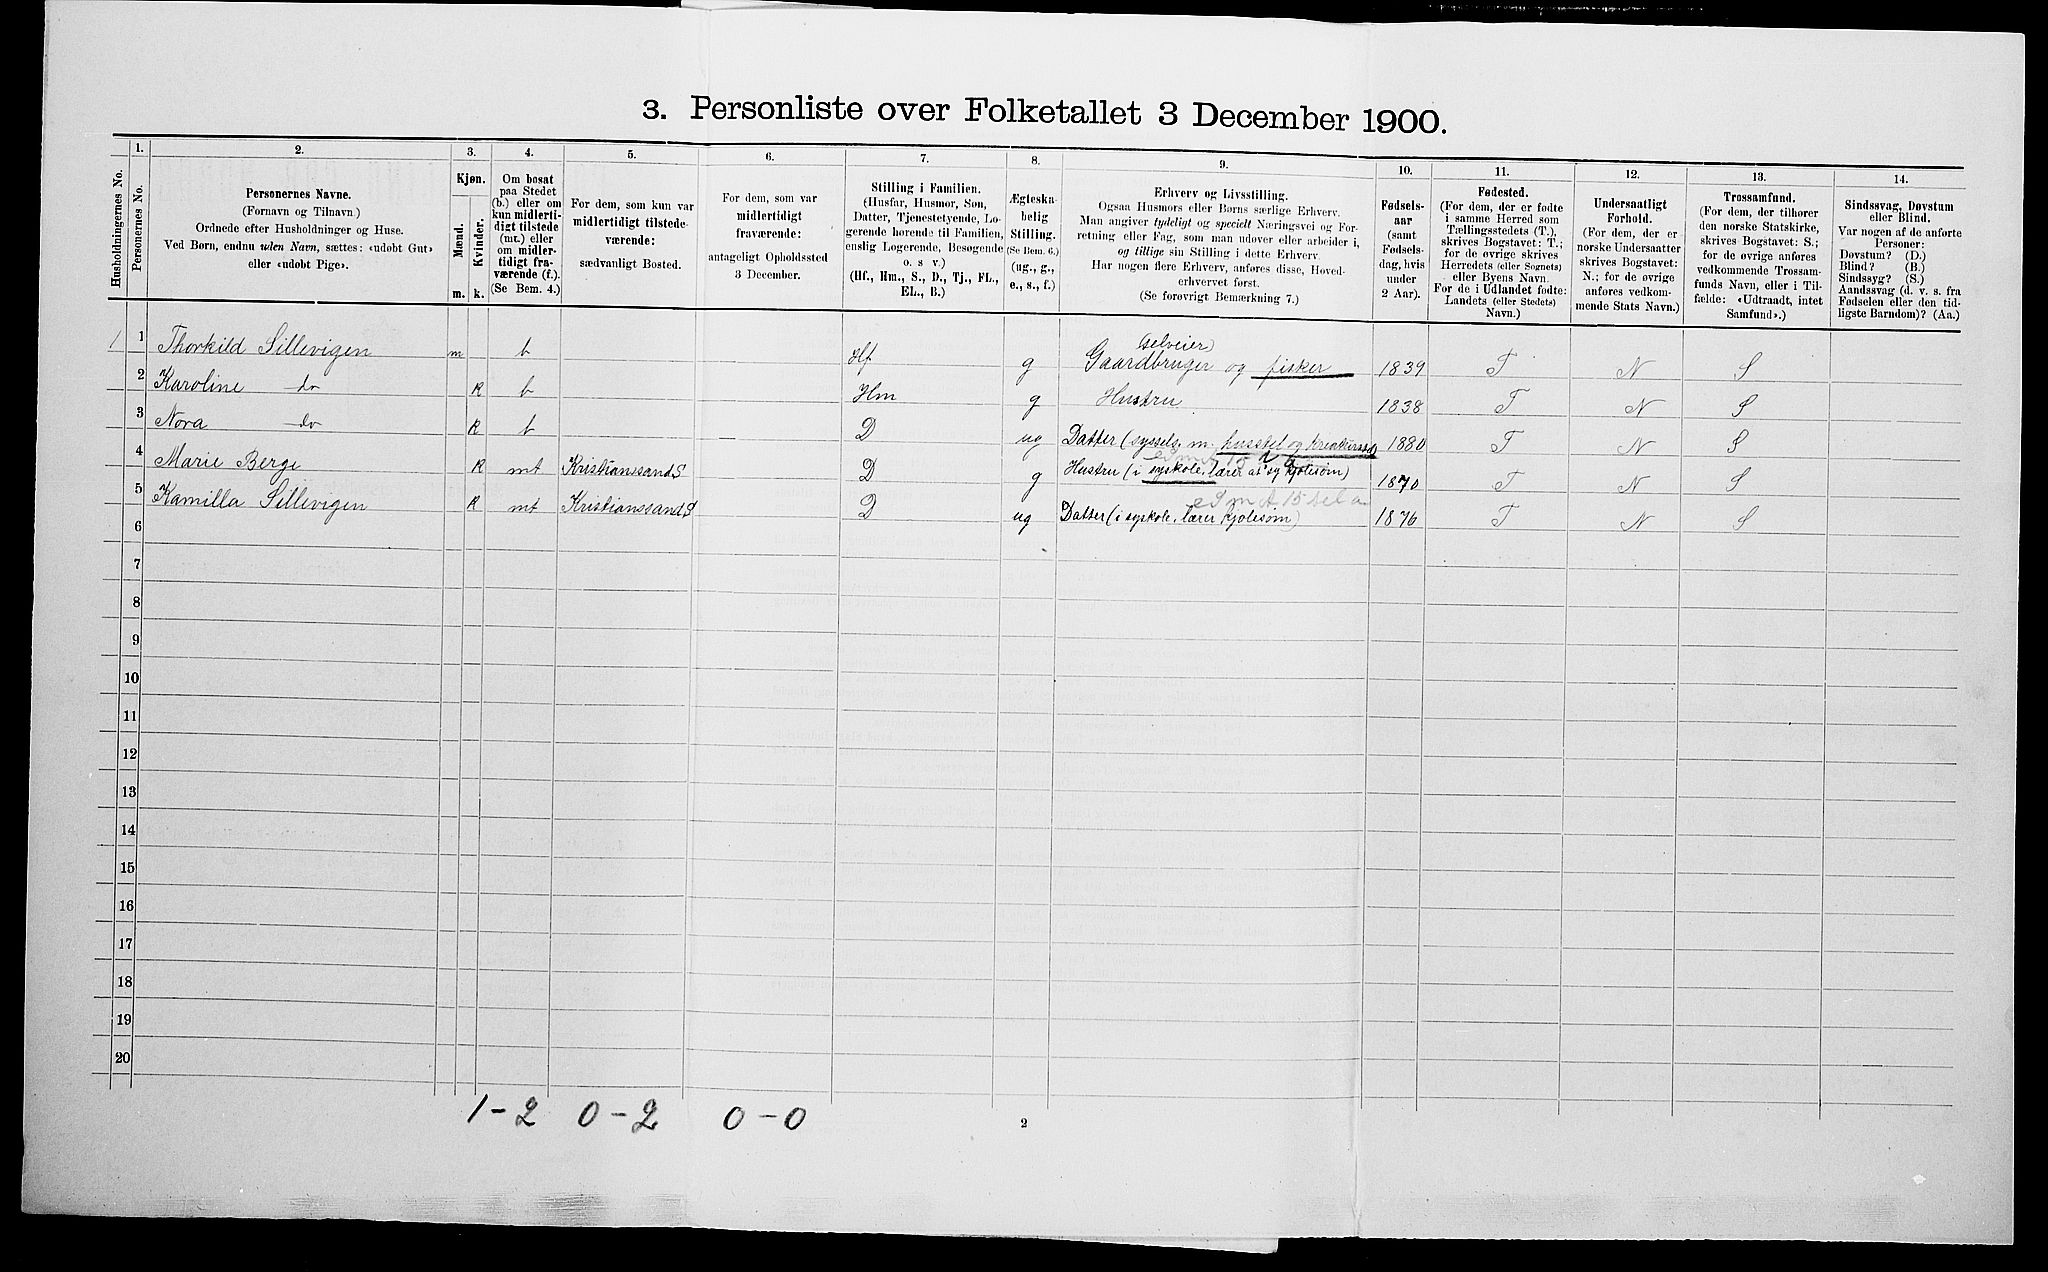 3. Personliste over Folketallet 3 December 1900.
1. 2. 3. 4. 5. 6. 7. 8. 9. 10. 11. 12. 13. 14.
Husholdningernes No.
Personernes No.
Personernes Navne.
(Fornavn og Tilnavn.)
Ordnede efter Husholdninger og Huse.
Ved Børn, endnu uden Navn, sættes: «udøbt Gut»
eller «udøbt Pige».
Kjøn.
Mænd.
Kvinder.
m. k.
Om bosat
paa Stedet
(b.) eller om
kun midlerti-
digt tilstede
(mt.) eller
om midler-
tidigt fra-
værende (f.).
(Se Bem. 4.)
For dem, som kun var
midlertidigt tilstede-
værende:
sædvanligt Bosted.
For dem, som var
midlertidigt
fraværende:
antageligt Opholdssted
3 December.
Stilling i Familien.
(Husfar, Husmor, Søn,
Datter, Tjenestetyende, Lo-
gerende hørende til Familien,
enslig Logerende, Besøgende
o. s v.)
(Hf., Hm., S., D., Tj., FL.,
EL., B.)
Ægteska-
belig
Stilling.
(Se Bem. 6.)
(ug., g.,
e., s., f.)
Erhverv og Livsstilling.
Ogsaa Husmors eller Børns særlige Erhverv.
Man angiver tydeligt og specielt Næringsvei og For-
retning eller Fag, som man udøver eller arbeider i,
og tillige sin Stilling i dette Erhverv.
Har nogen flere Erhverv, anføres disse, Hoved-
erhvervet først.
(Se forøvrigt Bemærkning 7.)
Fødsels-
aar
(samt
Fødsels-
dag, hvis
under
2 Aar).
Fødested.
(For dem, der er fødte
i samme Herred som
Tællingsstedets (T.),
skrives Bogstavet: T.;
for de øvrige skrives
Herredets (eller Sognets)
eller Byens Navn.
For de i Udlandet fødte:
Landets (eller Stedets)
Navn.)
Undersaatligt
Forhold.
(For dem, der er
norske Undersaatter
skrives Bogstavet:
N.; for de øvrige
anføres vedkom-
mende Stats Navn.)
Trossamfund.
(For dem, der tilhører
den norske Statskirke,
skrives Bogstavet: S.;
for de øvrige anføres
vedkommende Trossam-
funds Navn, eller i Til-
fælde: «Udtraadt, intet
Samfund».)
Sindssvag, Døvstum
eller Blind.
Var nogen af de anførte
Personer:
Døvstum? (D.)
Blind? (B.)
Sindssyg? (S.)
Aandssvag (d. v. s. fra
Fødselen eller den tid-
ligste Barndom)? (Aa.)
(selveier)
1 1 Thorkild Sillevigen m b Hf g Gaardbruger og fisker 1839 T N S
2 Karoline do K b Hm g Hustru 1838 T N S
3 Nora do K b D ug Datter (syssels. m. husstel og kreaturstd 1880 T N S
4 Marie Berge K mt Kristianssand S D g Hustru (i syskole, lærer at sy kjolesøm) 1870 T N S
5 Kamilla Sillevigen K mt Kristianssand S D ug Datter (i syskole, lærer kjolesøm) 1876 T N S
6
7
8
9
10
11
12
13
14
15
16
17
18
19
20
1-2 0-2 0-0
2